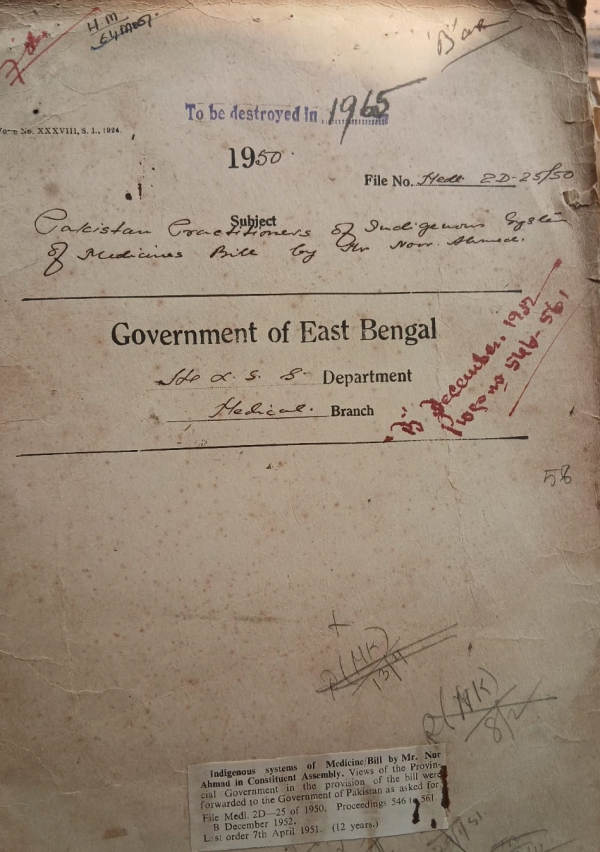 H M
"B" ar
To be destroyed in 1965
Form No. XXXVIII, S. I., 1924.
1950
File No. Medl. 2D-25/50
Subject
Pakistan Practitioners of Indigenous System
of Medicines Bill by Mr Noor Ahmed.
Government of East Bengal
H & L. S. G. Department
Medical. Branch
"B" December. 1952
Progs nos 546-561
58
R (MK)
13/11
R (MK)
8/2
Indigenous systems of Medicine Bill by Mr. Nur
Ahmad in Constituent Assembly. Views of the Provin-
cial Government in the provision of the bill were
forwarded to the Government of Pakistan as asked for
File Medl. 2D—25 of 1950. Proceedings 546 to 561.
B December 1952.
Last order 7th April 1951. (12 years.)